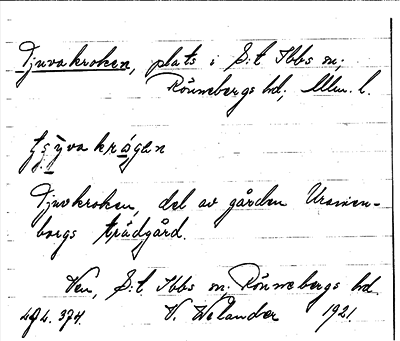 Tjuvakroken, plats i S:t Ibbs sn;
Rönnebergs hd; Mlm. l.
krógen
Tjuvkroken, del av gården Uranien-
borgs trädgård.
Ven, S:t Ibbs sn, Rönnebergs hd
494.374. V. Welander 1921.